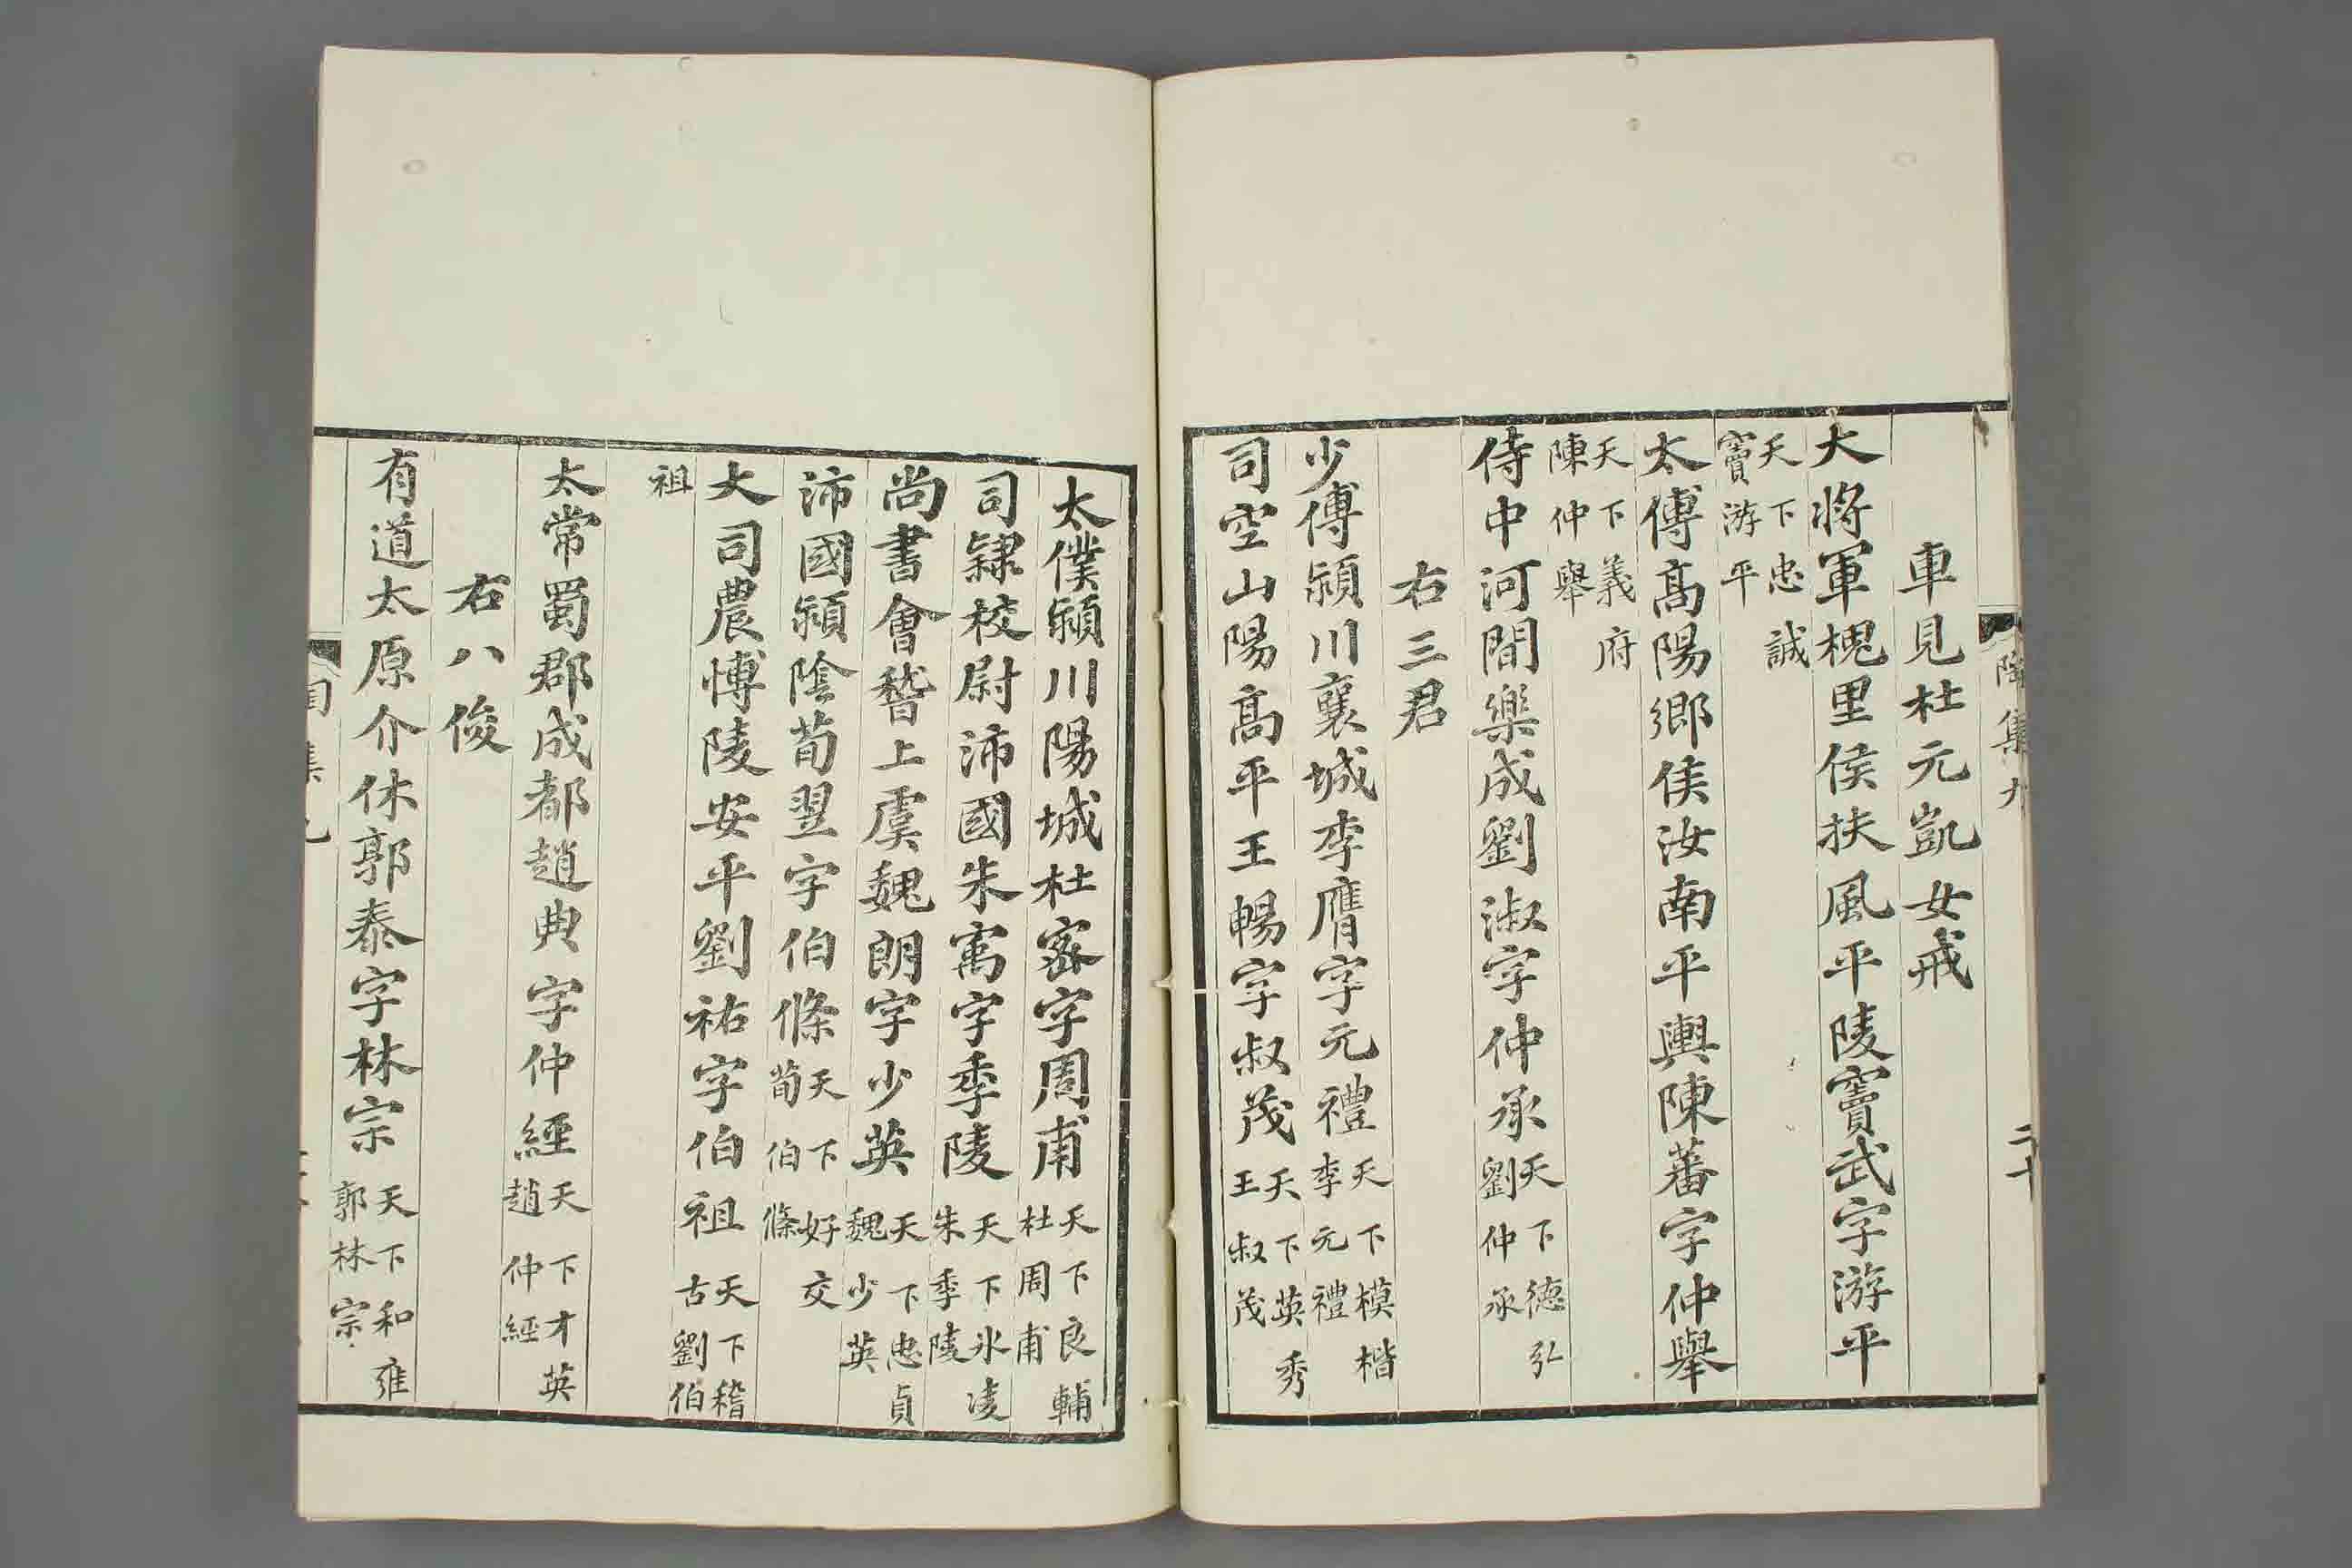 車見杜元凱女戒
大將軍槐里侯扶風平陵竇武字游平
天下忠誠
竇游平
太傅高陽鄉侯汝南平輿陳蕃字仲舉
天下義府
陳仲舉
侍中河間樂成劉淑字仲承天下德弘
劉仲承
右三君
少傅潁川襄城李膺字元禮天下模楷
李元禮
司空山陽高平王暢字叔茂天下英秀
王叔茂
太僕潁川陽城杜密字周甫天下良輔
杜周甫
司隸校尉沛國朱寓字季陵天下氷凌
朱季陵
尚書會稽上虞魏朗字少英天下忠貞
魏少英
沛國潁陰荀翌字伯條天下好交
荀伯條
大司農博陵安平劉祐字伯祖天下稽
古劉伯
祖
太常蜀郡成都趙典字仲經天下才英
趙仲經
右八俊
有道太原介休郭泰字林宗天下和雍
郭林宗